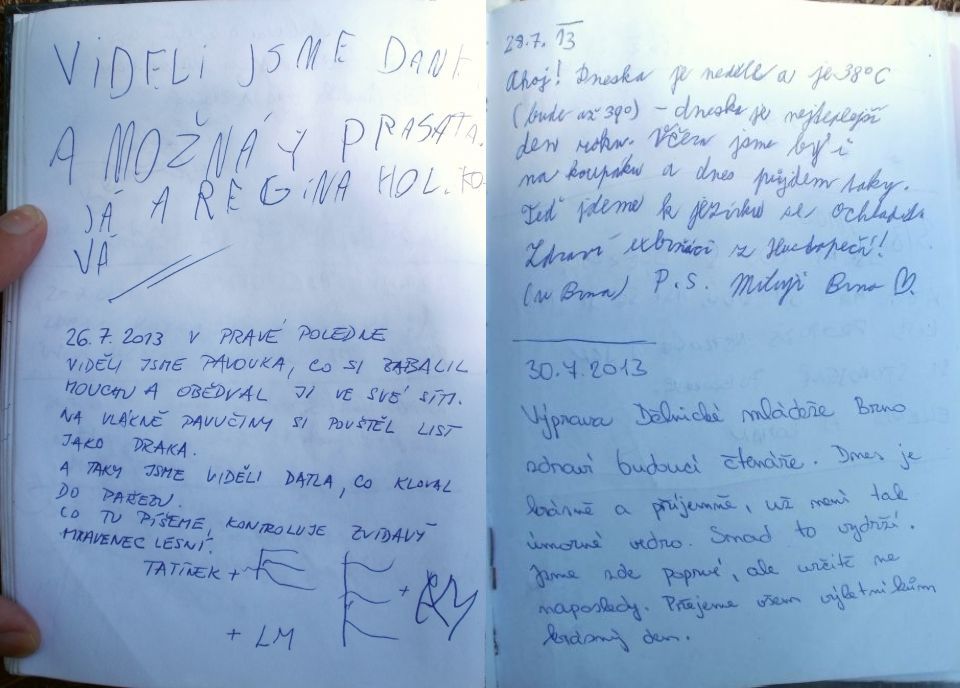 VIDĚLI JSME DANI
A MOŽNÁ Y PRASATA.
JÁ A REGINA HOL.KO
VÁ
26.7.2013 V PRAVÉ POLEDNE
VIDĚLI JSME PAVOUKA, CO SI ZABALIL
MOUCHU A OBĚDVAL JI VE SVÉ SÍTI.
NA VLÁKNĚ PAVUČINY SI POUŠTĚL LIST
JAKO DRAKA.
A TAKY JSME VIDĚLI DATLA, CO KLOVAL
DO PAŘEZU.
CO TU PÍŠEME, KONTROLUJE ZVÍDAVÝ
MRAVENEC LESNÍ.
TATÍNEK +
+
+ LM
28.7. 13
Ahoj! Dneska je neděle a je 38°C
(bude až 39°) – dneska je nejteplejší
den roku. Včera jsme byli
na koupáku a dnes půjdem taky.
Teď jdeme k jezírku se ochladit.
Zdraví z
(u Brna) P.S. Miluji Brno ♡.
30.7.2013
Výprava Dělnické mládeže Brno
zdraví budoucí čtenáře. Dnes je
krásně a příjemně, už není tak
úmorné vedro. Snad to vydrží.
Jsme zde poprvé, ale určitě ne
naposledy. Přejeme všem výletníkům
krásný den.